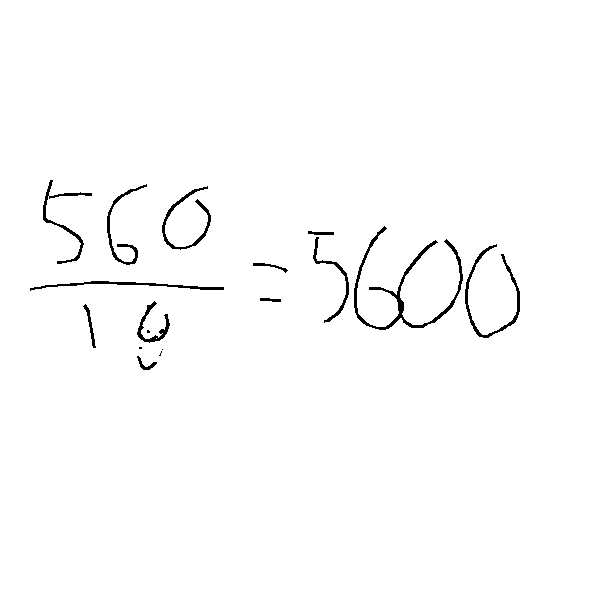 560
10
= 5600